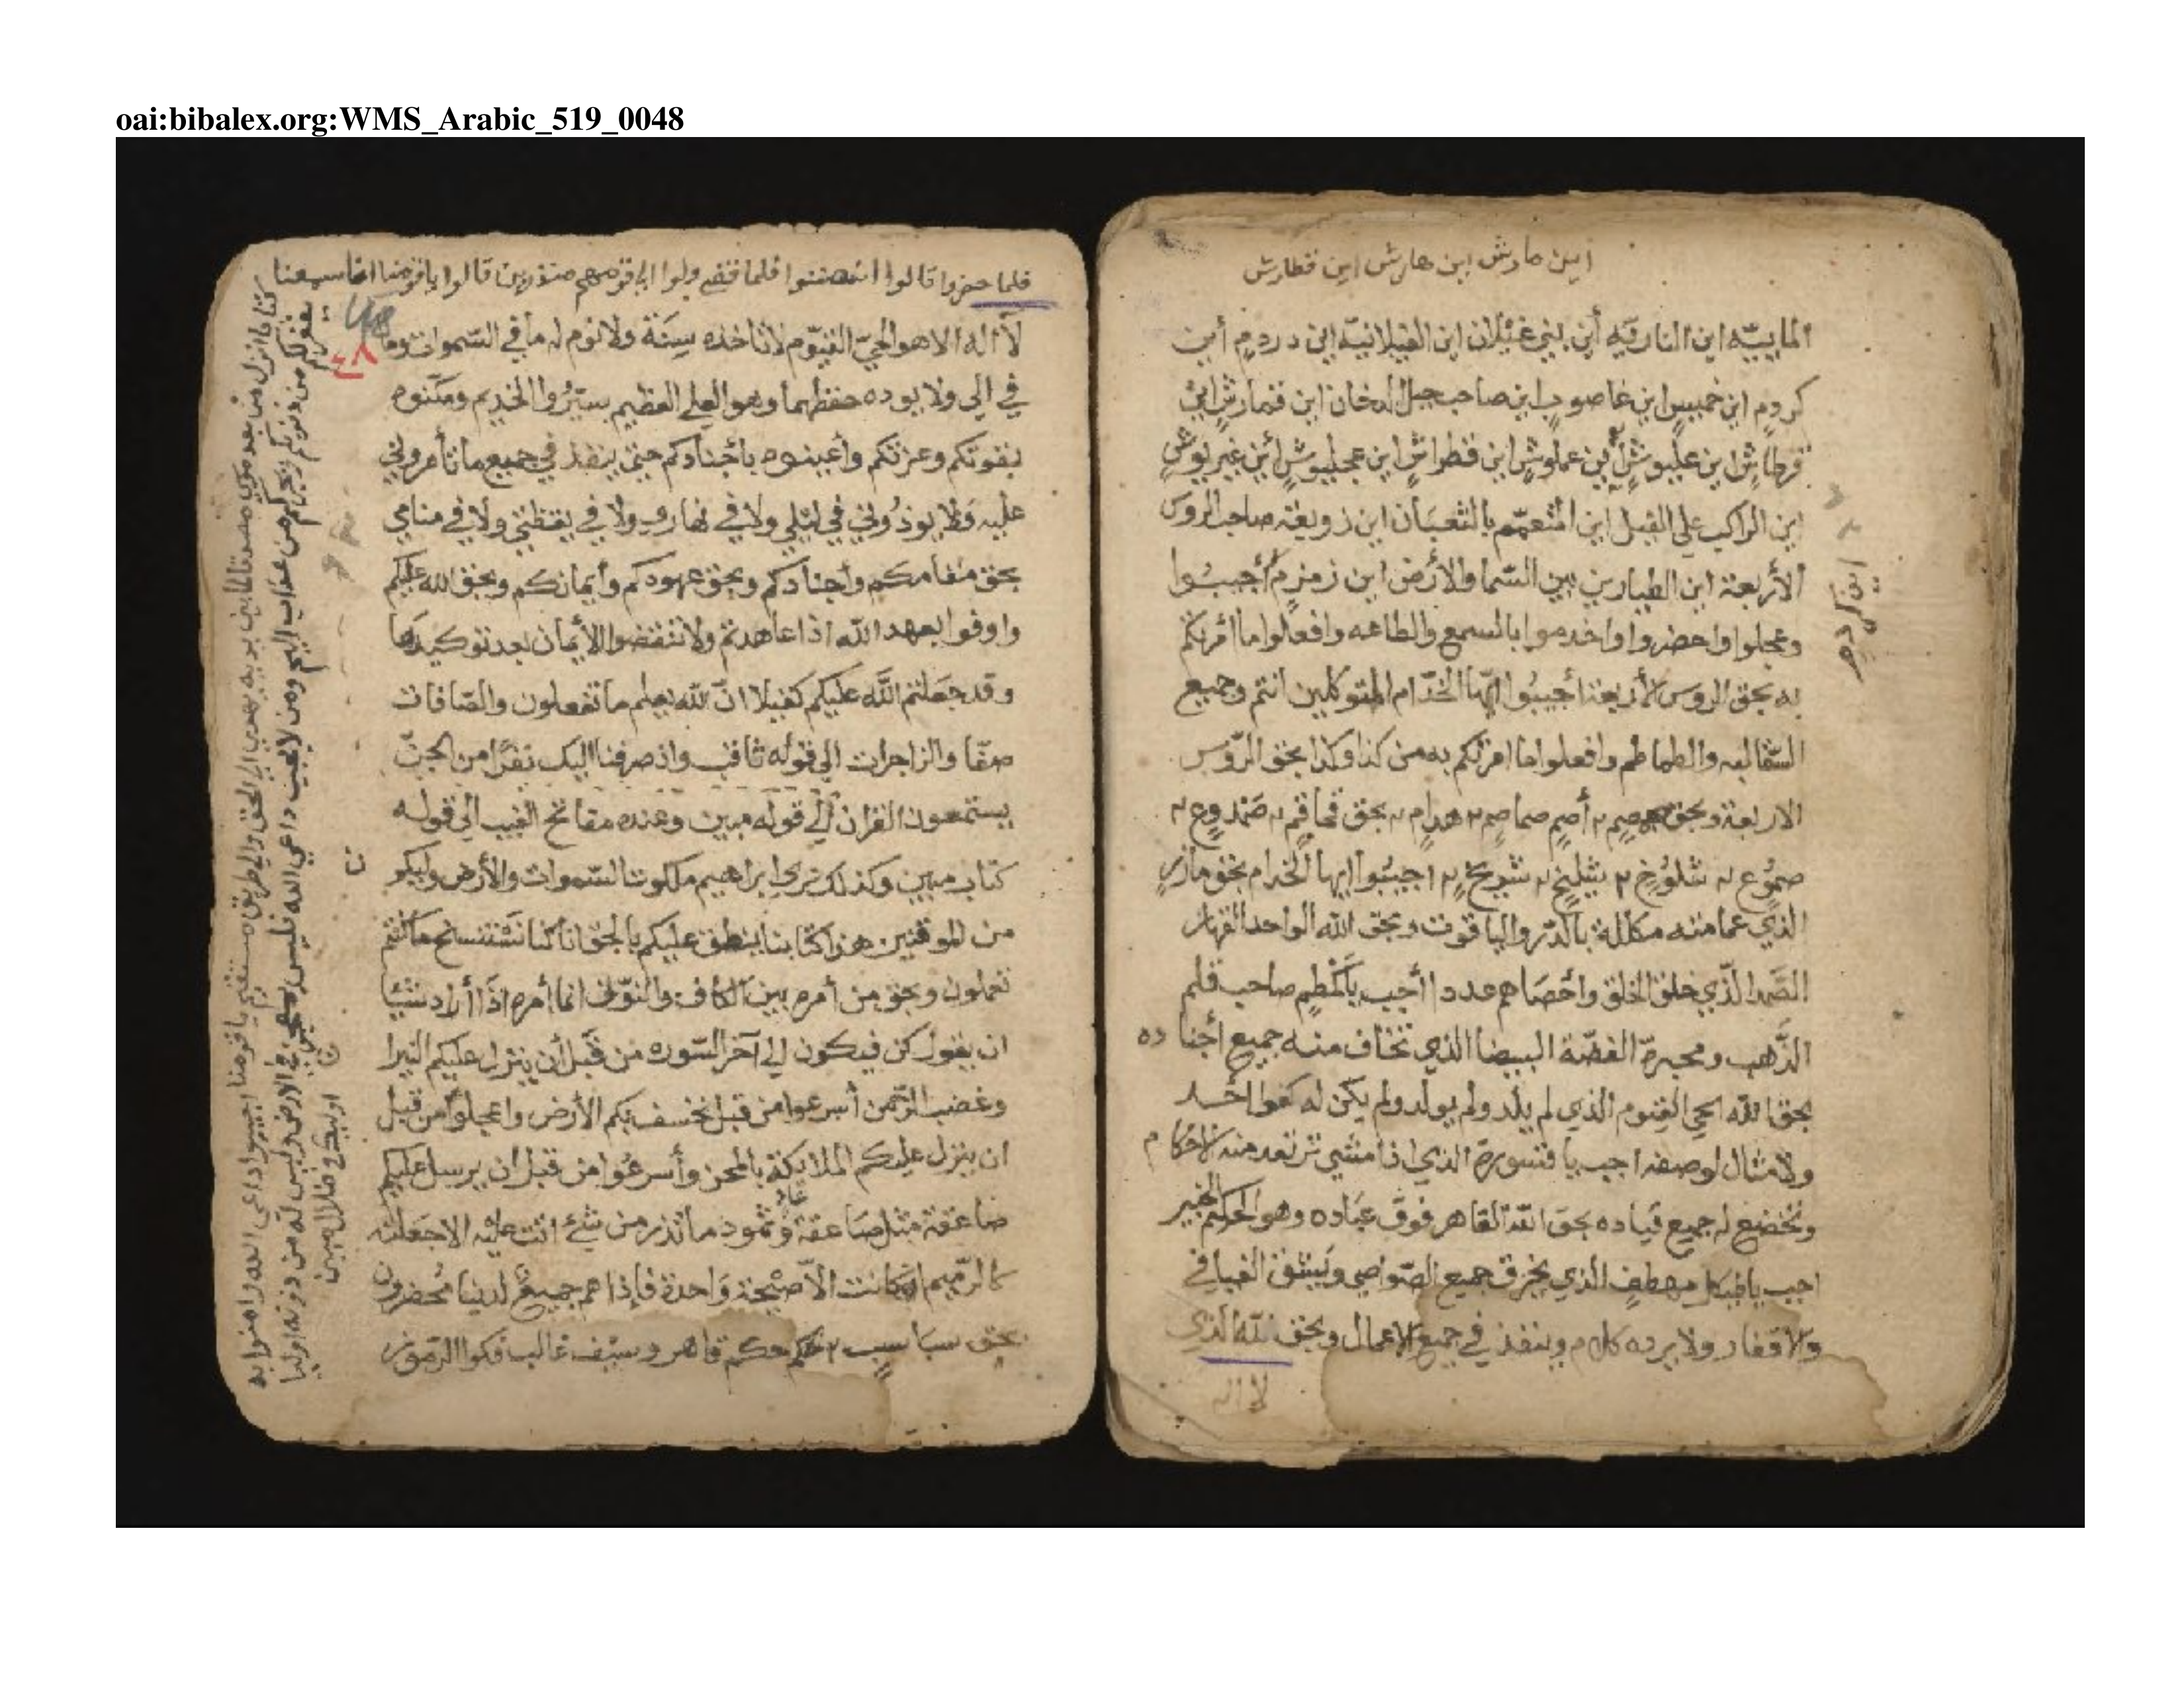 oai:bibalex.org:WMS_Arabic_519_0048
اين مارش اين هارش اين قطارش
المايييه اين النارقيه أين بني غيلان اين الغيلانية اين دردم أين
كردم اين خميس اين غاصوب اين صاحب جبل الدخان اين قمارش اين
قرطاش اين عليوش أين عملوش اين قطراش اين عجليوش أين غيريوش
اين الراكب على الفيل اين المتعمّم بالثعبان اين زوبعة صاحب الروس
الأربعة اين الطيارين بين السّما والأرض اين زمزم أجيبُوا
وعجلوا واحضروا واخدموا بالسمع والطاعه وافعلوا ما امرتكم
به بحق الروس الأربعة أجيبُوا ايّها الخدّام المتوكلين انتم وجميع
السّفاليه والطماطم وافعلوا ما امرتكم به من كذا وكذا بحق الرّوس
الاربعة وبحق أصم صماصم هدام بحق قماقم صمدوع
صموع شلوخ شليخ شويخ اجيبُوا ايها الخدام بحق مازر
الذي عمامته مكللة بالدّر والياقوت وبحق الله الواحد القهار
الصَّمد الذّي خلق الخلق وأحصاهم عددا أجب يا صاحب قلم
الذَّهب ومحبرة الفضّة البيضا الذي تخاف منه جميع أجناده
بحق الله الحي القيوم الذي لم يلد ولم يولد ولم يكن له كفوا احد
ولا مثال لوصفه اجب يا قسورة الذي اذا مشي ترتعد منه الاكام
وتخضع له جميع قياده بحق الله القاهر فوق عباده وهو الحكيم الخبير
اجب يا مهطف الذي يخرق جميع الصّواصي ويشق الفيافي
والاقفار ولا يرده كلام وينفذ في جميع الاعمال وبحق الله الذي
لا اله
اين كردم
فلما حضروا قالوا انصتوا فلما قضي ولوا الى قومهم منذرين قالوا يا قومنا انا سمعنا
كتابا انزل من بعد موسى مصدقا لما بين يديه يهدي الى الحق والى طريق مستقيم يا قومنا اجيبوا داعي الله وامنوا به
يغفر لكم من ذنوبكم ويجركم من عذاب اليم ومن لا يجب داعي الله فليس بمعجز في الارض وليس له من دونه اوليا
اوليك في ضلال مبين
٤٨
لا اله الا هو الحيّ القيّوم لا تاخذه سِنَة ولا نوم له ما في السّموات وما
في الى ولا يوده حفظهما وهو العلي العظيم سيّرُوا الخديم ومكّنوه
بقوتكم وعزتكم وأعينوه بأجنادكم حتى ينفذ في جميع ما تأمروني
عليه ولا يوذوني في ليلي ولا في نهاري ولا في يقظتي ولا في منامي
بحق مقامكم وأجنادكم وبحق عهودكم وأيمانكم وبحق الله عليكم
واوفوا بعهد الله اذا عاهدتم ولا تنقضوا الأيمان بعد توكيدها
وقد جعلتم الله عليكم كفيلا انّ الله يعلم ما تفعلون والصّافات
صفّا والزاجرات الى قوله ثاقب واذ صرفنا اليك نفرًا من الجنّ
يستمعون القران إلى قوله مبين وعنده مفاتح الغيب الى قوله
كتاب مبين وكذلك نري ابراهيم ملكوت السّموات والأرض وليكون
من الموقنين هذا كتابنا ينطق عليكم بالحق انا كنا نَسْتنسخ ما كنتم
تعملون وبحق من أمره بين الكاف والنّون انما أمره اذا أراد شيئا
ان يقول كن فيكون إلى آخر السّوره من قَبل أن ينزل عليكم النيرا
ن
وغضب الرّحمن أسرعوا من قبل تخسف بكم الأرض واعجلوا من قبل
ان ينزل عليكم الملايكة بالمحن وأسرعُوا من قبل ان يرسل عليكم
صاعقة مثل صَاعقة عاد وثمود ما تذر من شيء اتت عليه الا جعلته
كالرّميم ان كانت الاّ صيْحة وَاحدة فإذا هم جميعٌ لدينا مُحضرون
بحق سباسب حكم قاهر وسَيْف غالب فكوا الرّموز